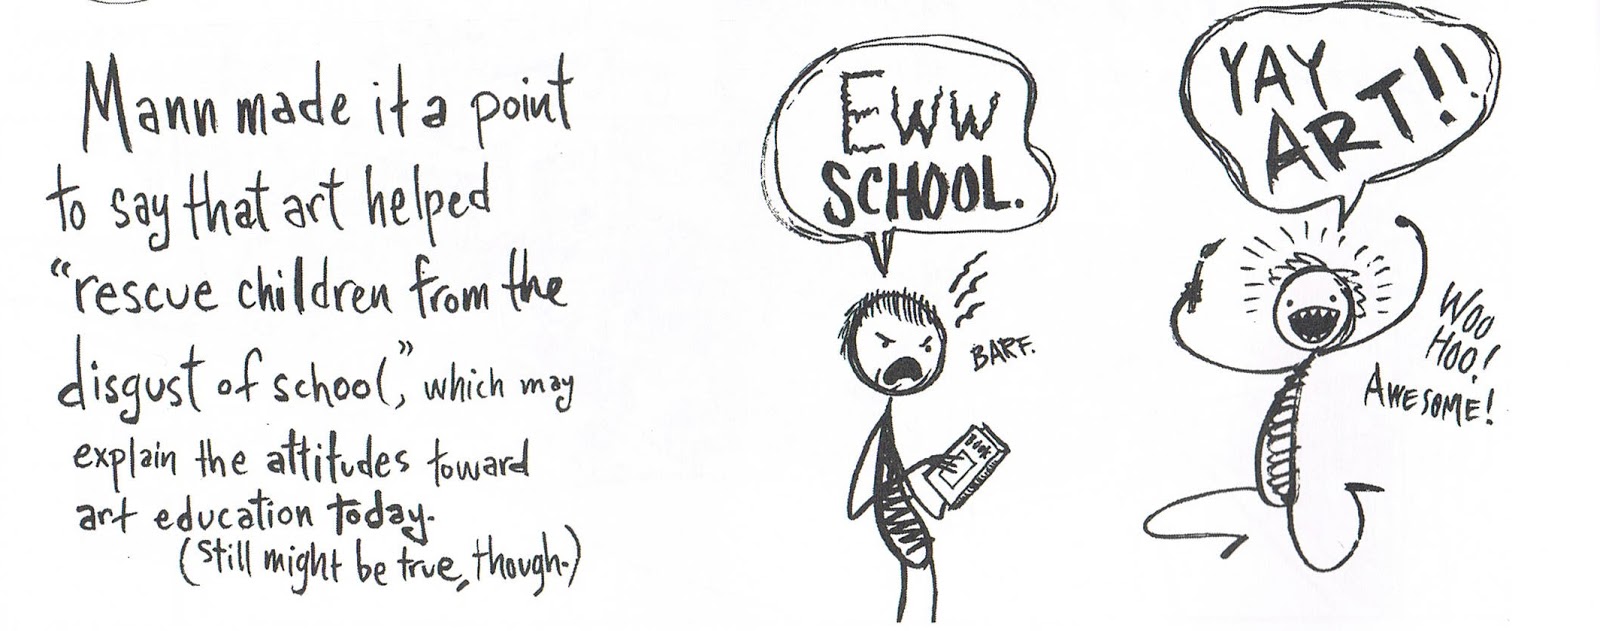 Mann made it a point
to say that art helped
“rescue children from the
disgust of school,” which may
explain the attitudes toward
art education today.
(still might be true, though.)
EWW
SCHOOL.
BARF.
BOOK
YAY
ART!!
WOO
HOO!
AWESOME!